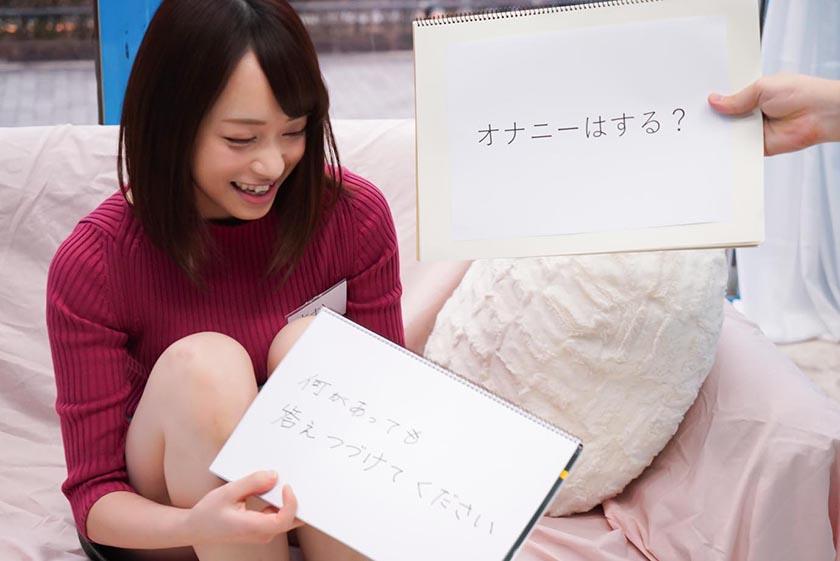 オナニーはする？
何があっても
答えつづけてください